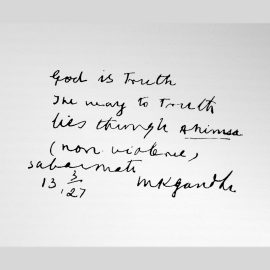 God is Truth
The way to Truth
lies through ahimsa
(non violence)
Sabarmati
13 3 '27 MKGandhi